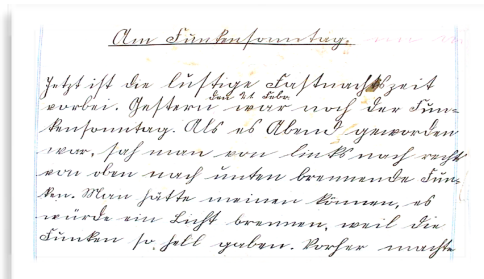 Am Funkensonntag.
Jetzt ist die lustige Fastnachtszeit
den 21. Febr.
vorbei. Gestern war noch der Fun-
kensonntag. Als es Abend geworden
war, sah man von links nach rechts
von oben nach unten brennende Fun-
ken. Man hätte meinen können, es
würde ein Licht brennen, weil die
Funken so hell gaben. Vorher machte